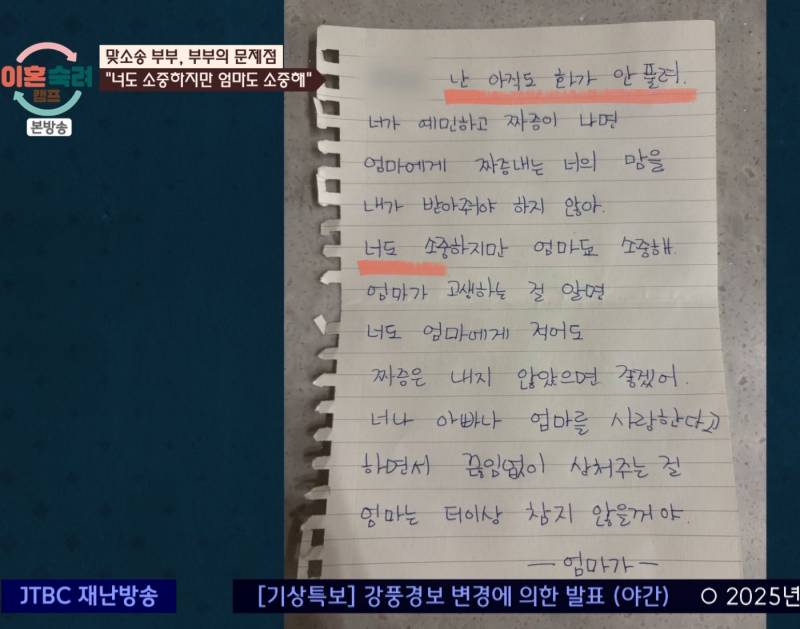 이혼 숙려
캠프
본방송
맞소송 부부, 부부의 문제점
"너도 소중하지만 엄마도 소중해"
난 아직도 화가 안 풀려.
너가 예민하고 짜증이 나면
엄마에게 짜증내는 너의 맘을
내가 받아줘야 하지 않아.
너도 소중하지만 엄마도 소중해.
엄마가 고생하는 걸 알면
너도 엄마에게 적어도
짜증은 내지 않았으면 좋겠어.
너나 아빠나 엄마를 사랑한다고
하면서 끊임없이 상처주는 걸
엄마는 더이상 참지 않을꺼야.
— 엄마가 —
JTBC 재난방송
[기상특보] 강풍경보 변경에 의한 발표 (야간)
○ 2025년